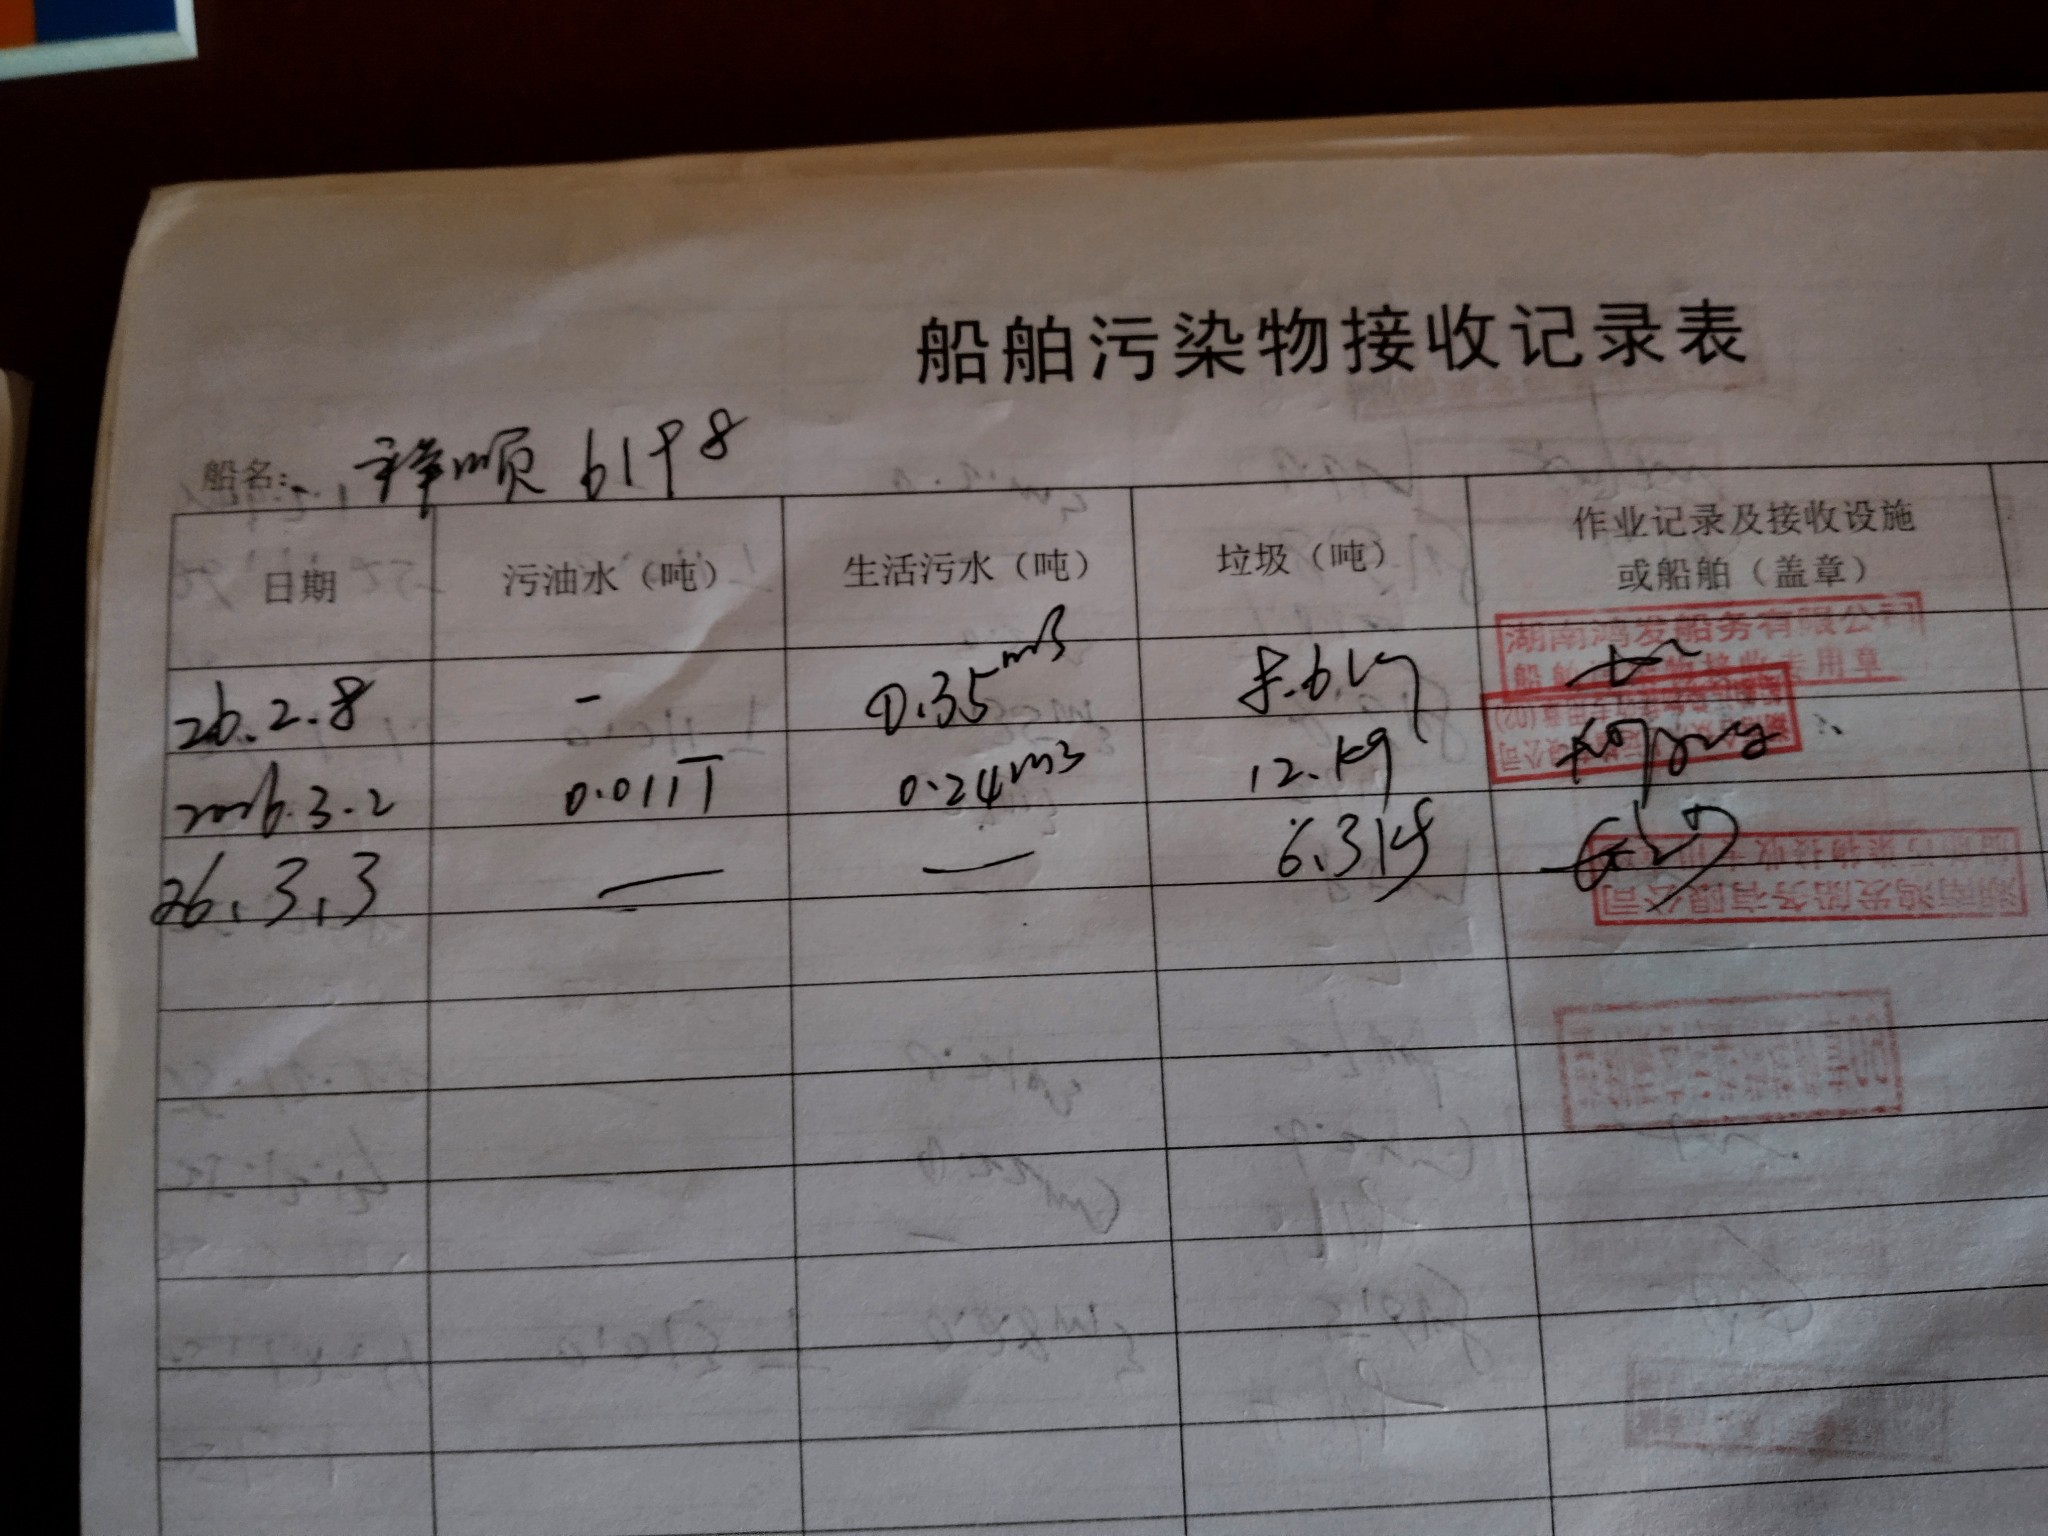 船舶污染物接收记录表
船名: 祥顺 6198
日期 污油水（吨） 生活污水（吨） 垃圾（吨） 作业记录及接收设施
或船舶（盖章）
湖南鸿发船务有限公司
船舶污染物接收专用章
26.2.8 - 0.35m3 8.6kg
2026.3.2 0.011T 0.24m3 12.kg
26.3.3 — — 6.3kg
湖南鸿发船务有限公司
船舶污染物接收专用章